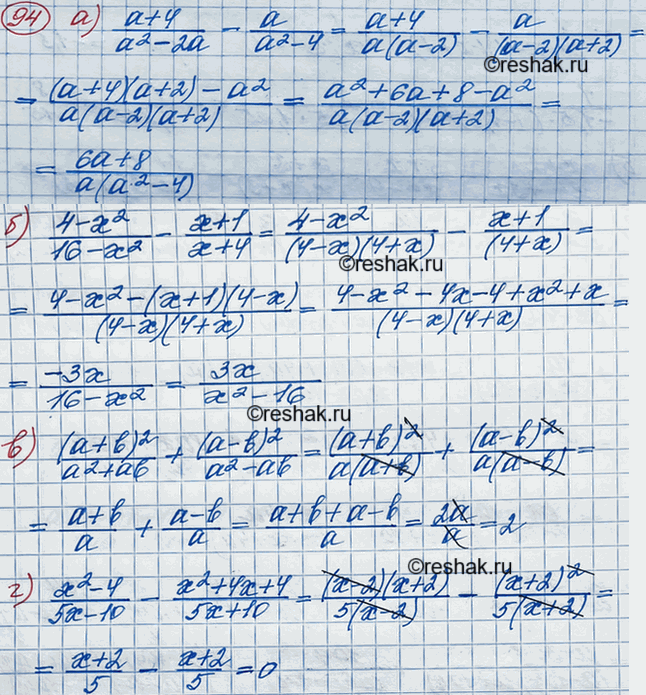 94 а) (a+4)/(a²-2a) - a/(a²-4) = (a+4)/(a(a-2)) - a/((a-2)(a+2)) =
©reshak.ru
= ((a+4)(a+2)-a²)/(a(a-2)(a+2)) = (a²+6a+8-a²)/(a(a-2)(a+2)) =
= (6a+8)/(a(a²-4))
б) (4-x²)/(16-x²) - (x+1)/(x+4) = (4-x²)/((4-x)(4+x)) - (x+1)/(4+x) =
©reshak.ru
= (4-x²-(x+1)(4-x))/((4-x)(4+x)) = (4-x²-4x-4+x²+x)/((4-x)(4+x)) =
= -3x/(16-x²) = 3x/(x²-16)
©reshak.ru
в) (a+b)²/(a²+ab) + (a-b)²/(a²-ab) = (a+b)²/(a(a+b)) + (a-b)²/(a(a-b)) =
= (a+b)/a + (a-b)/a = (a+b+a-b)/a = 2a/a = 2
©reshak.ru
г) (x²-4)/(5x-10) - (x²+4x+4)/(5x+10) = (x-2)(x+2)/(5(x-2)) - (x+2)²/(5(x+2)) =
= (x+2)/5 - (x+2)/5 = 0